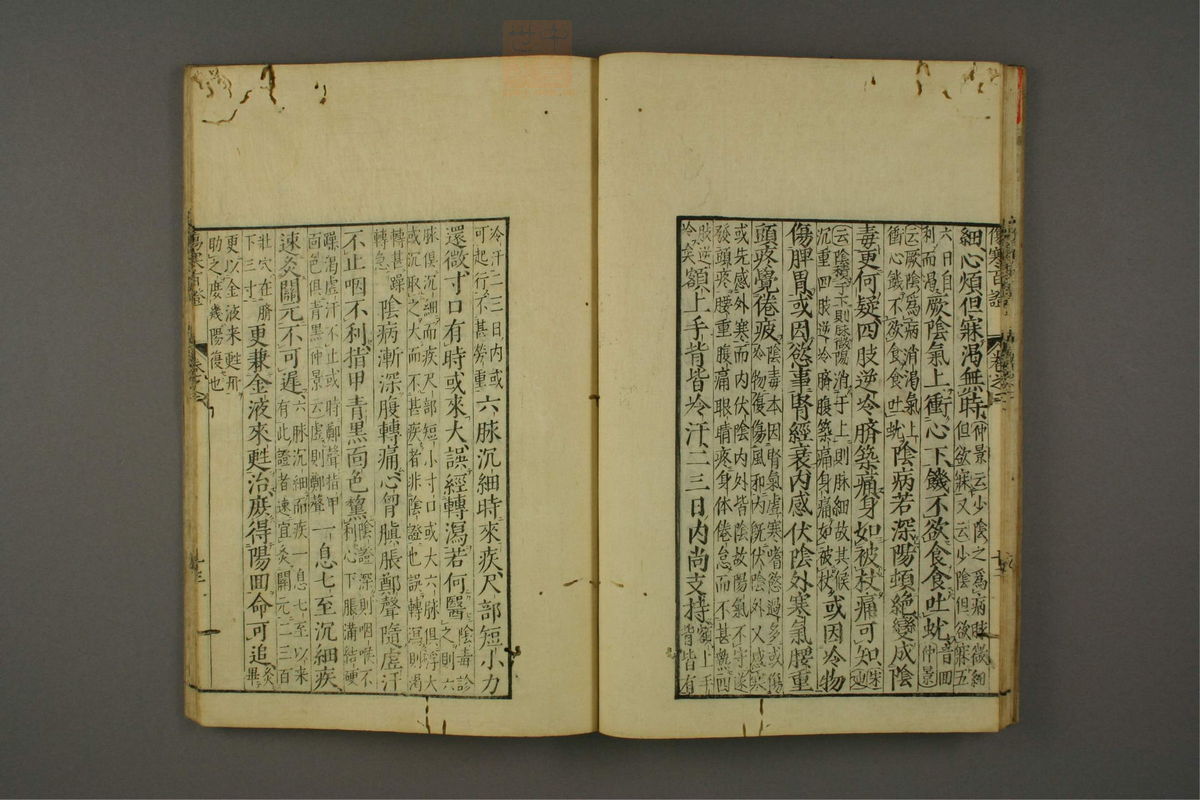 細心煩但寐渴無時仲景云少陰之為病脉微細但欲寐又云少陰但欲寐五
六日自利而渴厥陰氣上衝心下饑不欲食食吐蚘音回仲景
云厥陰為病消渴氣上衝心饑不欲食食吐蚘陰病若深陽頓絕變成陰
毒更何疑四肢逆冷臍築痛身如被杖痛可知
沉重四肢逆冷臍腹築痛身痛如被杖或因冷物
傷脾胃或因慾事腎經衰内感伏陰外寒氣腰重
頭疼覺倦疲陰毒本因腎氣虛寒嗜慾過多或傷冷物復傷風邪内既伏陰外又感寒
或先感外寒而内伏陰内外皆陰故陽氣不守遂發頭疼腰重腹痛眼睛疼身體倦怠而不甚熱四
肢逆冷矣額上手背皆冷汗二三日内尚支持額上手背皆有
冷汗二三日内或可起行不甚勞重六脉沉細時來疾尺部短小力
還微寸口有時或來大誤經轉瀉若何醫陰毒診之則六
脉俱沉細而疾尺部短小寸口或大六脉俱浮大或沉取之大而不甚疾者非陰證也誤轉瀉則渴
轉甚躁轉急陰病漸深腹轉痛心胷䐜脹鄭聲隨虛汗
不止咽不利指甲青黑面色黧陰證深則咽喉不利心下脹滿結硬
躁渴虛汗不止或時鄭聲指甲面色俱青黑仲景云虛則鄭聲一息七至沉細疾
速灸關元不可遲六脉沉細而疾一息七至以來有此證者速宜灸關元二三百
壯穴在臍下三寸更兼金液來甦治庶得陽回命可追灸畢
更以金液來甦丹助之庶幾陽復也
傷寒百證